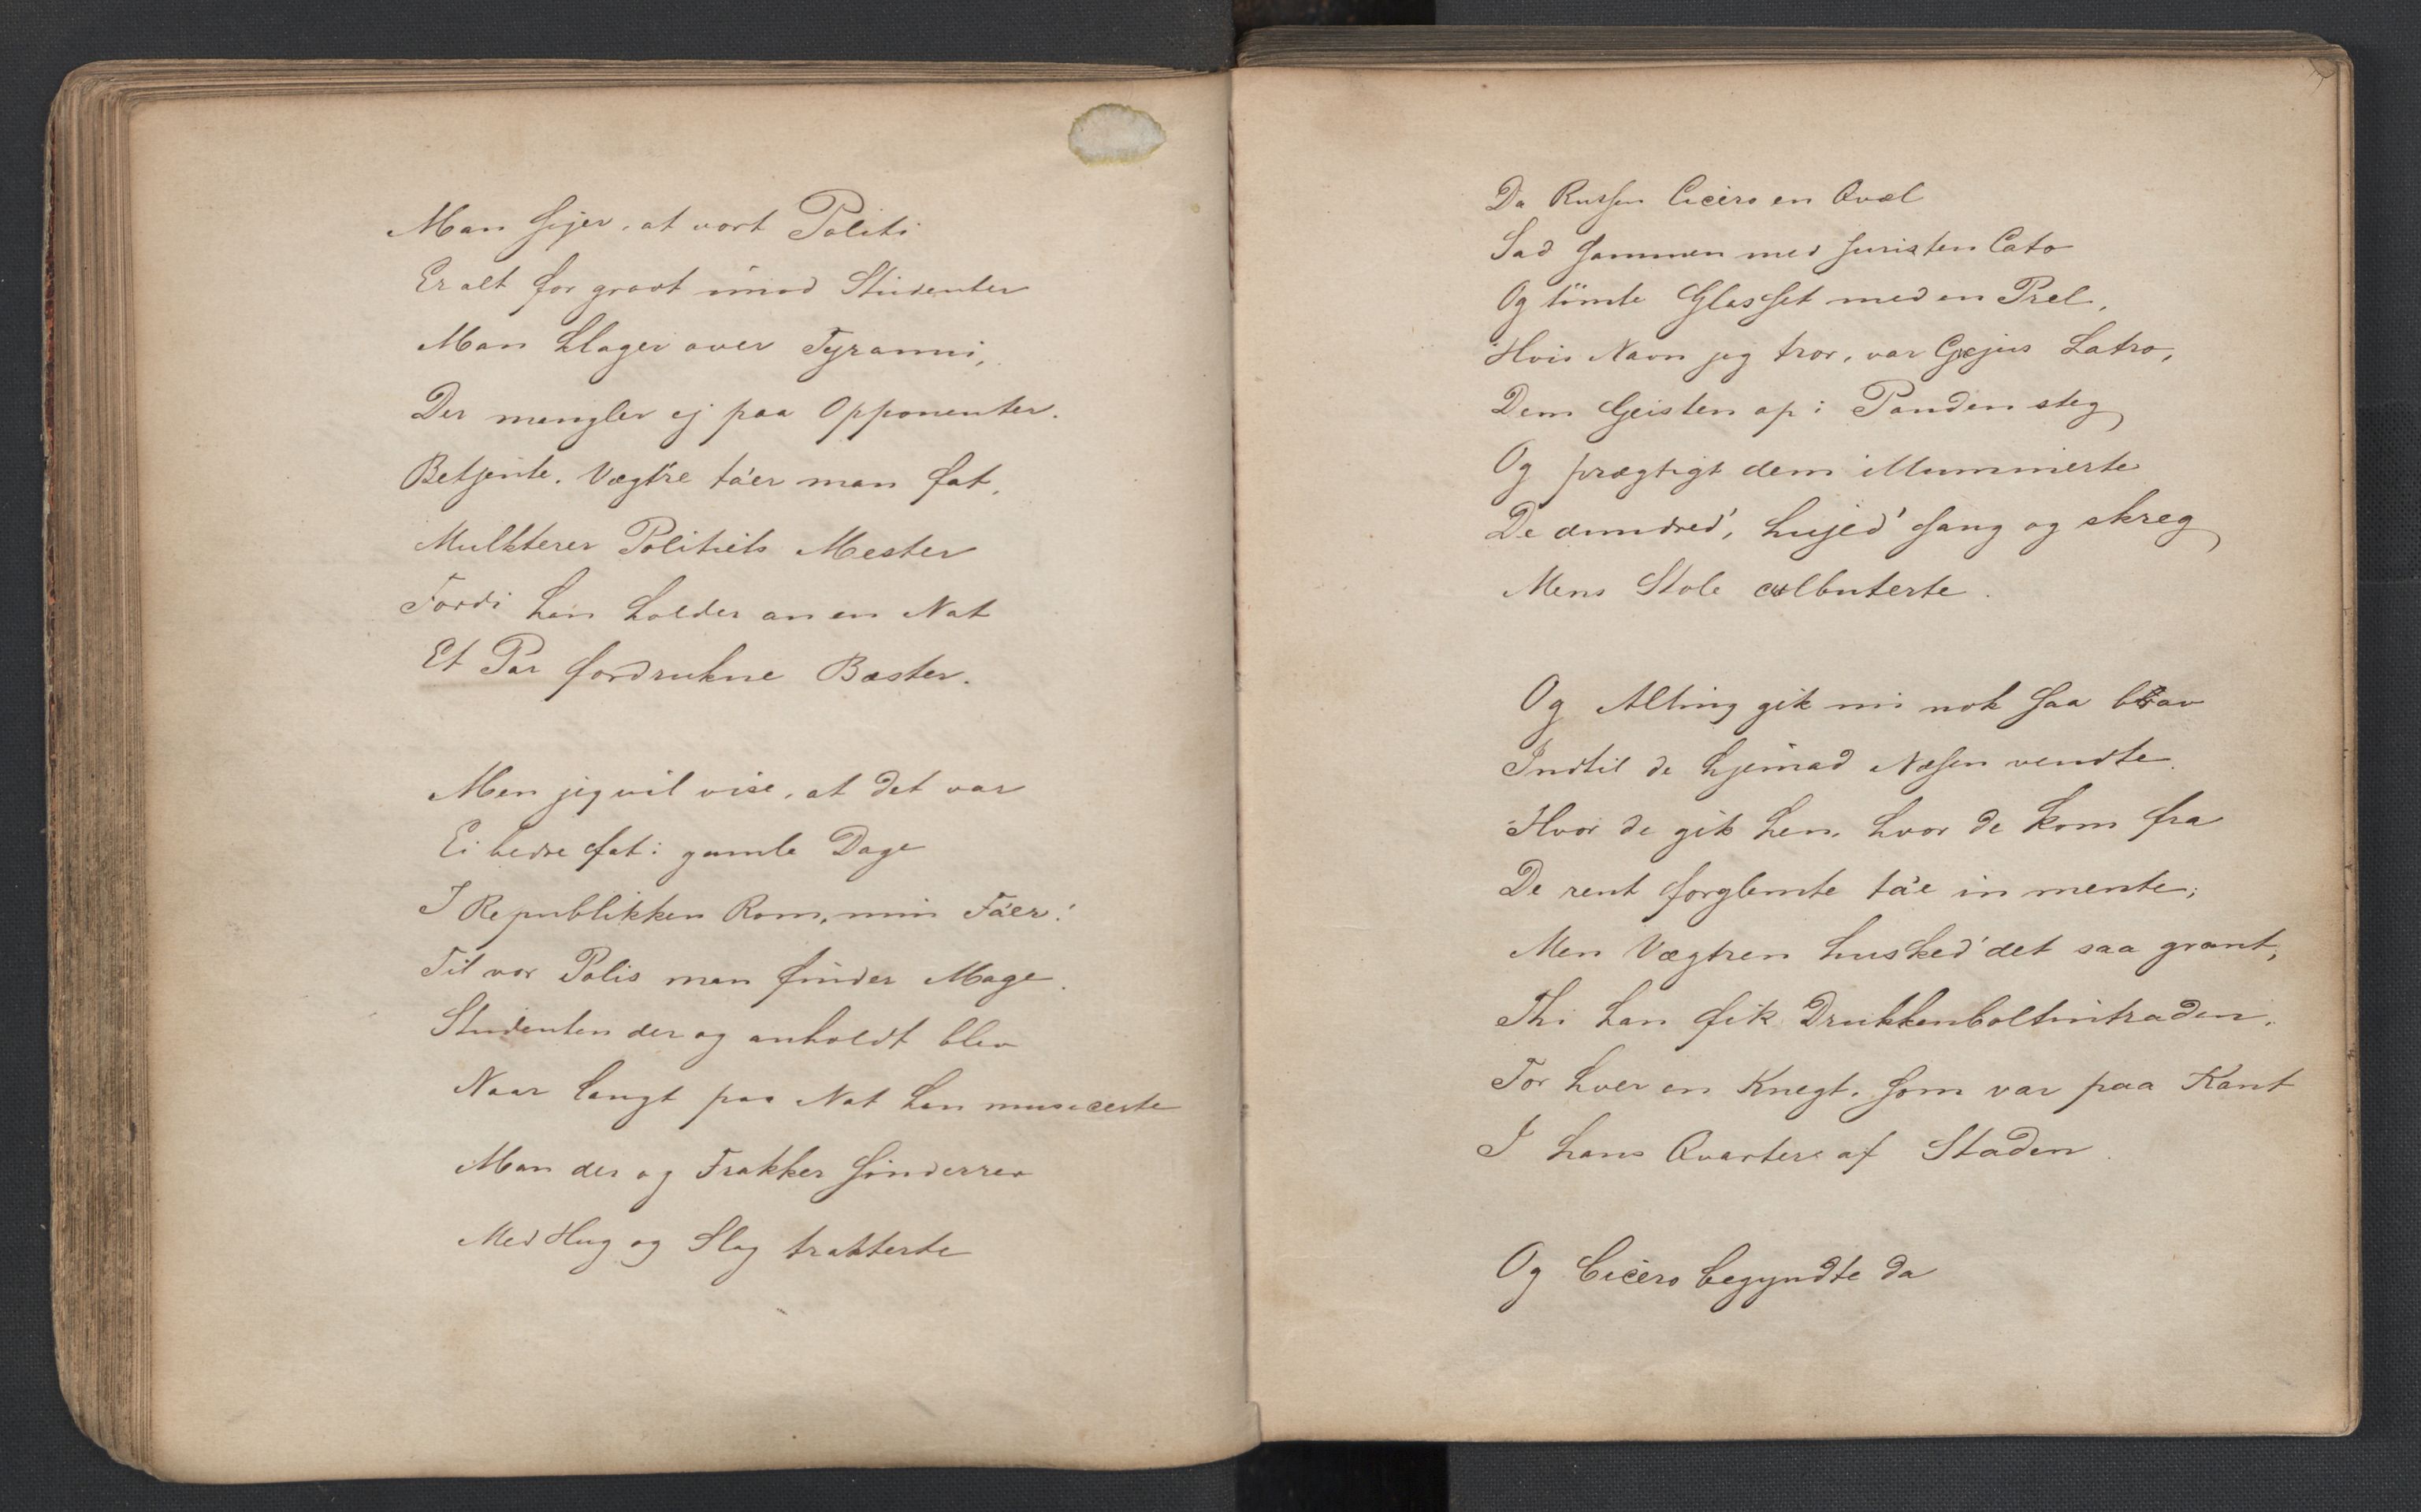 Man sijer, at vort Politi
Er alt for grovt imod Studenter
Man klager over Tyranni,
Der mangler ej paa Opponenter.
Betjente, Vægtre ta'er man fat,
Mulkterer Politiets Mester
Fordi han holder an en Nat
Et Par fordrukne Bæster.
Men jeg vil vise, at det var
Ei bedre fat i gamle Dage
I Republikken Rom, min Fa'er!
Til vor Polis man finder Mage.
Studenten der og anholdt blev
Naar langt paa Nat han musicerte
Man der og Frakker sönderrev
Med Hug og Slag trakterte
Da Russen Cicero en Qvæl
Sad sammen med Juristen Cato
Og tömte Glasset med en Præl,
Hvis Navn jeg tror, var Gajus Latro,
Dem Geisten op i Panden steg
Og prægtigt dem illuminerte
De dundred', hujed' sang og skreg
Mens Stole culbuterte.
Og Alting gik nu nok saa brav
Indtil de hjemad Næsen vendte.
Hvor de gik hen, hvor de kom fra
De rent forglemte ta'e in mente;
Men Vægtren husked' det saa grant,
Thi han fik Drukkenboltintraden,
For hver en Knegt, som var paa Kant
I hans Qvarter af Staden.
Og Cicero begyndte da